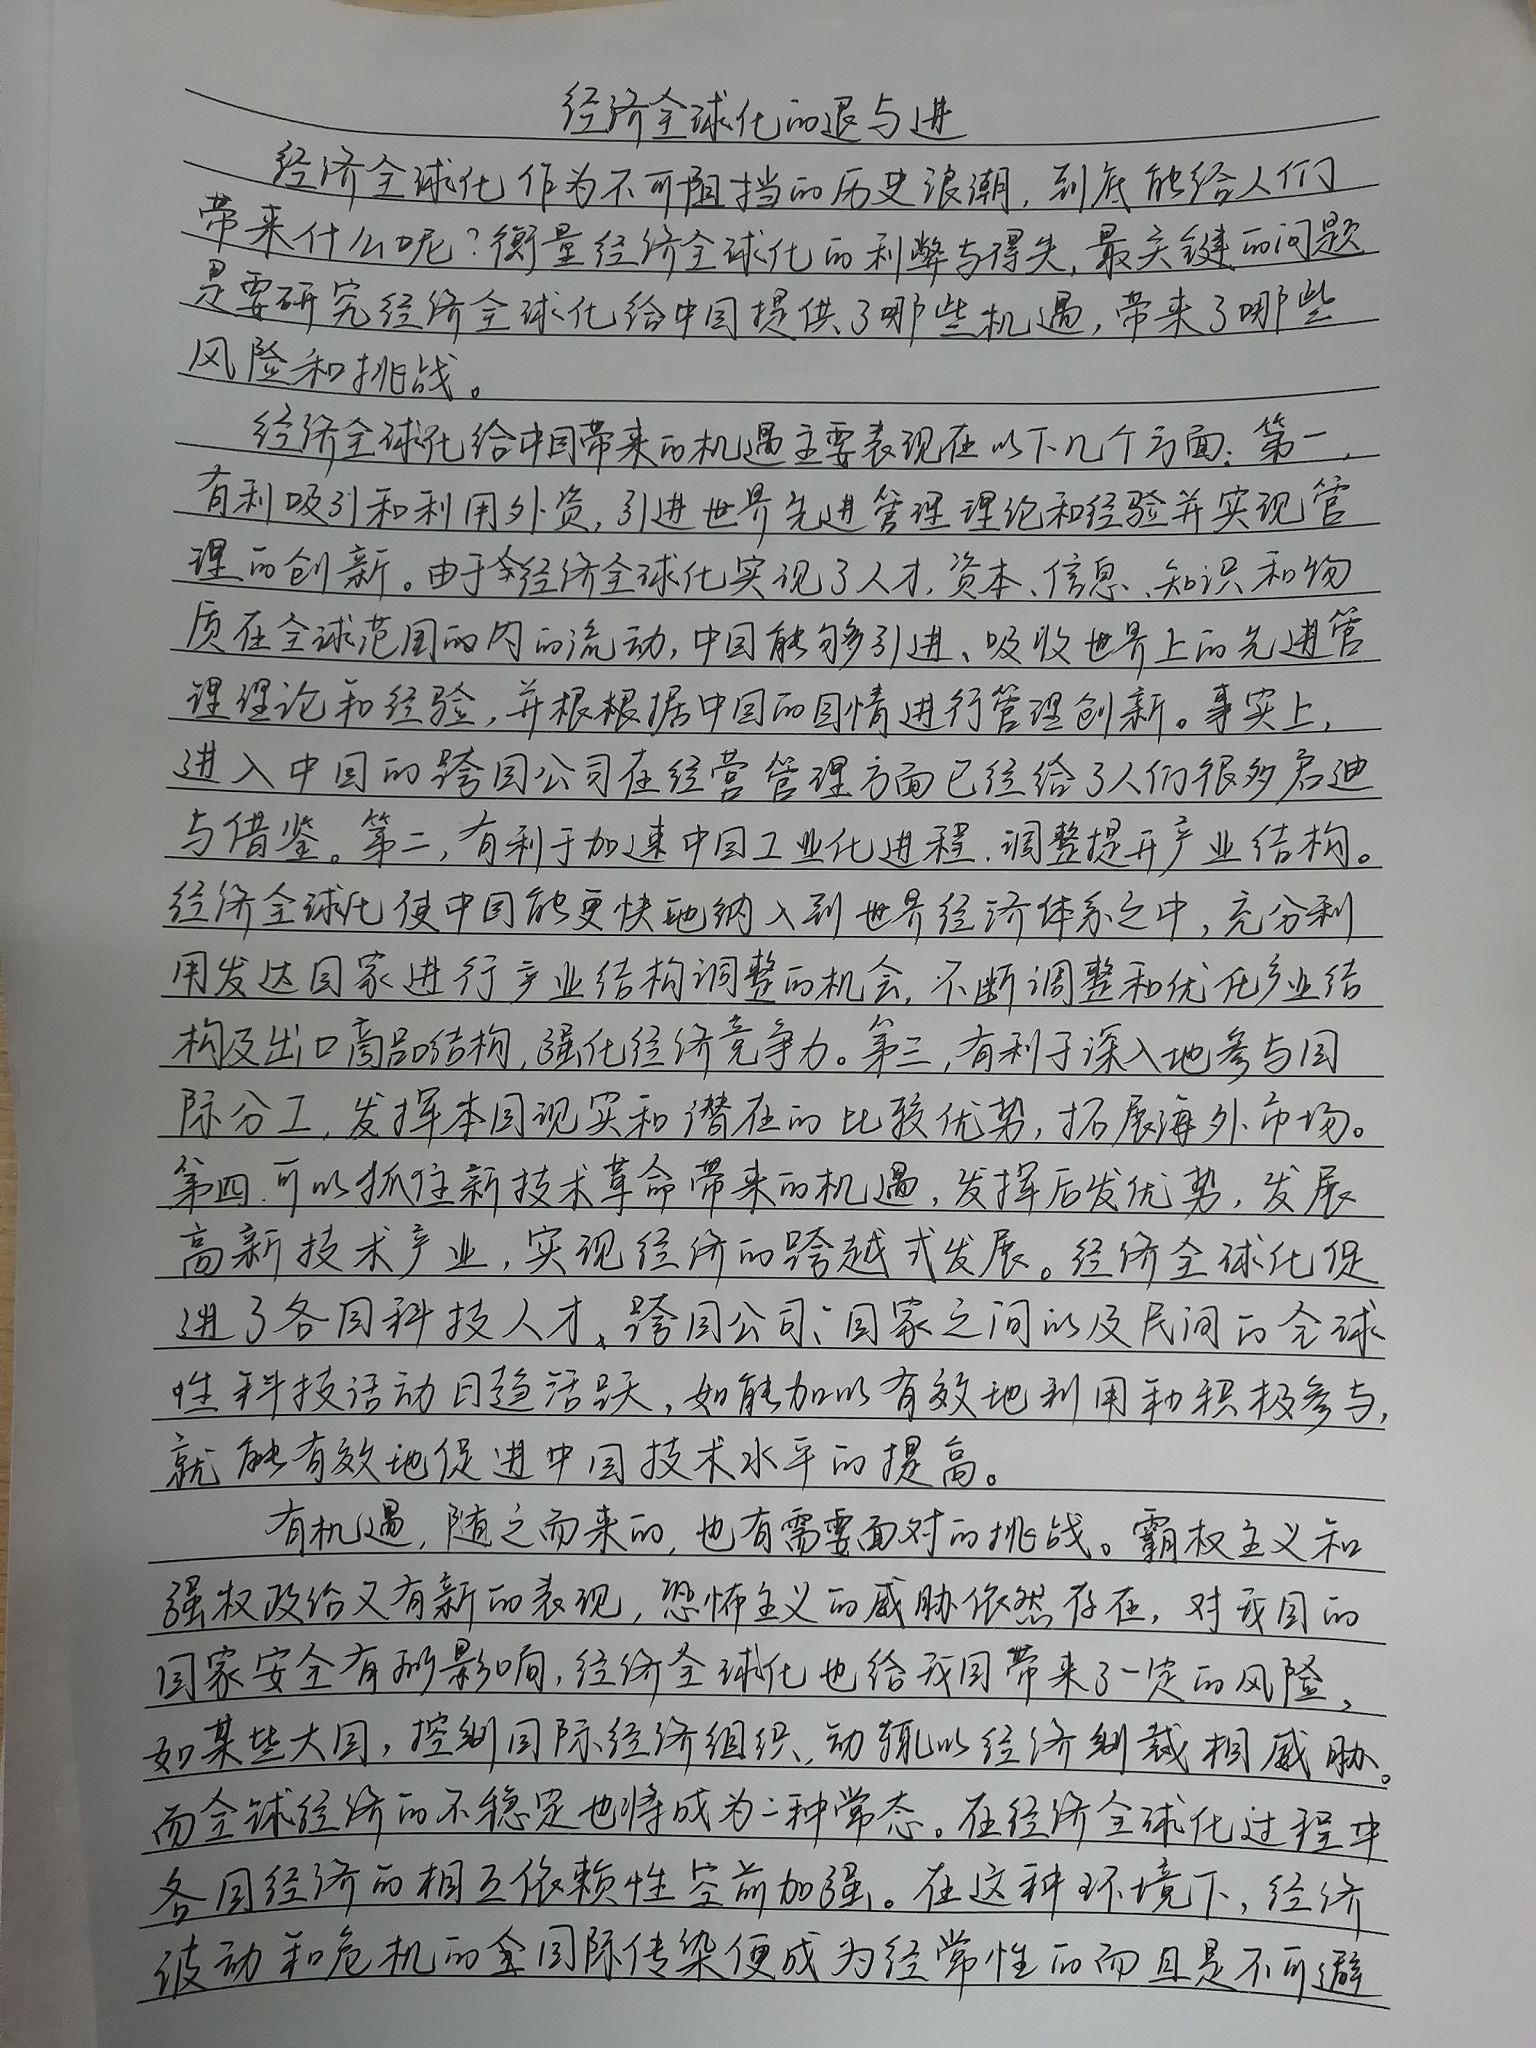 经济全球化的退与进
经济全球化作为不可阻挡的历史浪潮，到底能给人们
带来什么呢？衡量经济全球化的利弊与得失，最关键的问题
是要研究经济全球化给中国提供了哪些机遇，带来了哪些
风险和挑战。
经济全球化给中国带来的机遇主要表现在以下几个方面：第一，
有利吸引和利用外资，引进世界先进管理理论和经验并实现管
理的创新。由于经济全球化实现了人才，资本、信息、知识和物
质在全球范围的内的流动，中国能够引进、吸收世界上的先进管
理理论和经验，并根根据中国的国情进行管理创新。事实上，
进入中国的跨国公司在经营管理方面已经给了人们很多启迪
与借鉴。第二，有利于加速中国工业化进程，调整提升产业结构。
经济全球化使中国能更快地纳入到世界经济体系之中，充分利
用发达国家进行产业结构调整的机会，不断调整和优化产业结
构及出口商品结构，强化经济竞争力。第三，有利于深入地参与国
际分工，发挥本国现实和潜在的比较优势，拓展海外市场。
第四，可以抓住新技术革命带来的机遇，发挥后发优势，发展
高新技术产业，实现经济的跨越式发展。经济全球化促
进了各国科技人才、跨国公司、国家之间以及民间的全球
性科技活动日趋活跃，如能加以有效地利用和积极参与，
就能有效地促进中国技术水平的提高。
有机遇，随之而来的，也有需要面对的挑战。霸权主义和
强权政治又有新的表现，恐怖主义的威胁依然存在，对我国的
国家安全有所影响，经济全球化也给我国带来了一定的风险，
如某些大国，控制国际经济组织，动辄以经济制裁相威胁。
而全球经济的不稳定也将成为一种常态。在经济全球化过程中
各国经济的相互依赖性空前加强。在这种环境下，经济
波动和危机的国际传染便成为经常性的而且是不可避